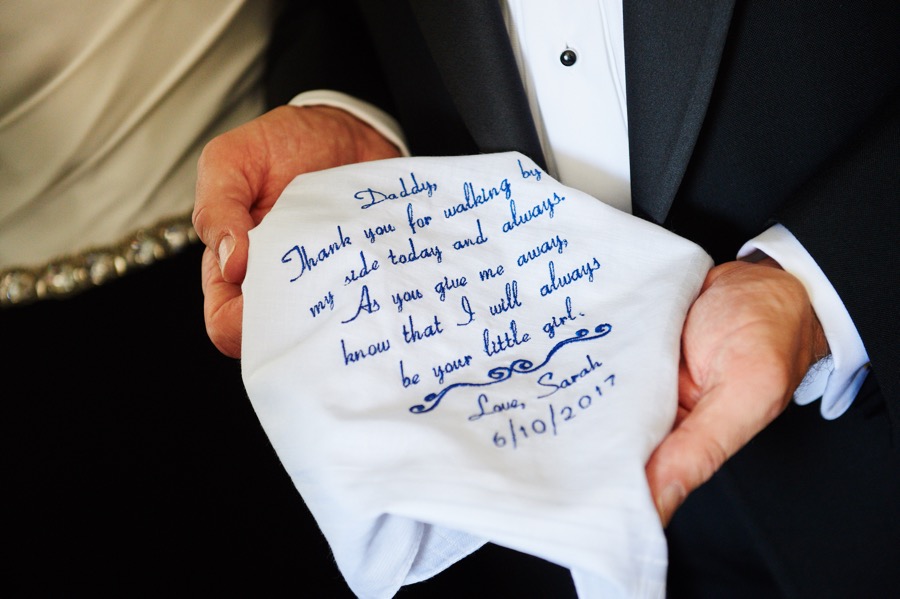 Daddy,
Thank you for walking by
my side today and always.
As you give me away,
know that I will always
be your little girl.
Love, Sarah
6/10/2017